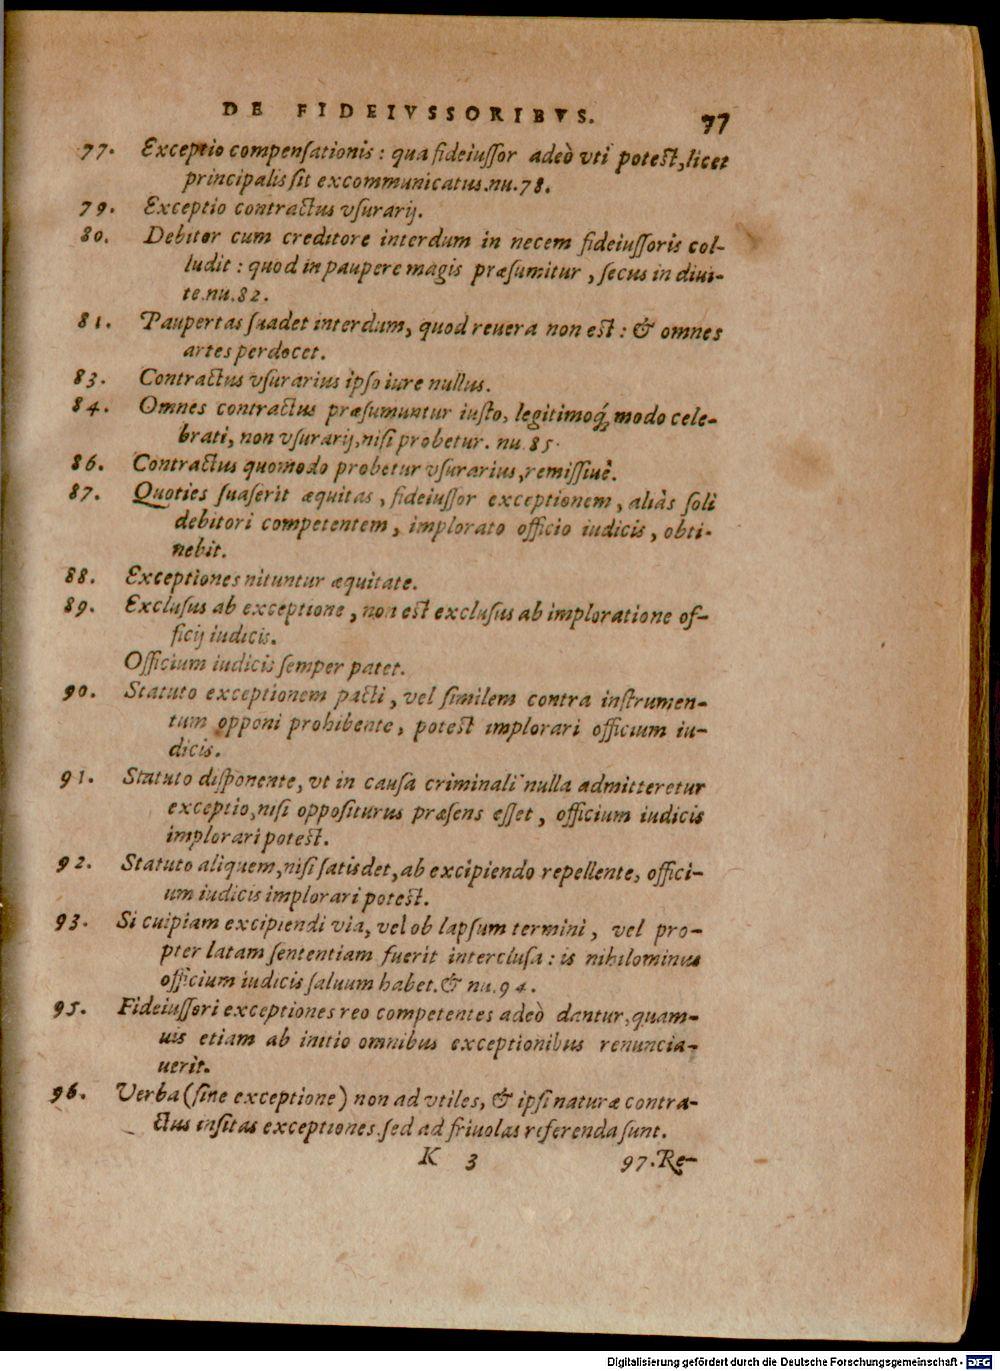 DE FIDEIVSSORIBVS. 77
77. Exceptio compenſationis : qua fideiuſſor adeò vti poteſt, licet
principalis ſit excommunicatus.nu.78.
79. Exceptio contractus vſurarij.
80. Debitor cum creditore interdum in necem fideiuſſoris col-
ludit : quod in paupere magis præſumitur , ſecus in diui-
te.nu.82.
81. Paupertas ſuadet interdum, quod reuera non est : & omnes
artes perdocet.
83. Contractus vſurarius ipſo iure nullus.
84. Omnes contractus præſumuntur iuſto, legitimoq́; modo cele-
brati, non vſurarij, niſi probetur. nu.85.
86. Contractus quomodo probetur vſurarius, remiſſiuè.
87. Quoties ſuaſerit æquitas , fideiuſſor exceptionem , aliàs ſoli
debitori competentem , implorato officio iudicis , obti-
nebit.
88. Exceptiones nituntur æquitate.
89. Excluſus ab exceptione , non eſt excluſus ab imploratione of-
ficij iudicis.
Officium iudicis ſemper patet.
90. Statuto exceptionem pacti , vel ſimilem contra inſtrumen-
tum opponi prohibente, poteſt implorari officium iu-
dicis.
91. Statuto diſponente, vt in cauſa criminali nulla admitteretur
exceptio, niſi oppoſiturus præſens eſſet , officium iudicis
implorari poteſt.
92. Statuto aliquem, niſi ſatisdet, ab excipiendo repellente, offici-
um iudicis implorari poteſt.
93. Si cuipiam excipiendi via, vel ob lapſum termini , vel pro-
pter latam ſententiam fuerit intercluſa : is nihilominus
officium iudicis ſaluum habet. & nu.94.
95. Fideiuſſori exceptiones reo competentes adeò dantur, quam-
uis etiam ab initio omnibus exceptionibus renuncia-
uerit.
96. Verba (ſine exceptione) non ad vtiles, & ipſi naturæ contra-
ctus inſitas exceptiones. ſed ad friuolas referenda ſunt.
K 3 97. Re-
Digitalisierung gefördert durch die Deutsche Forschungsgemeinschaft - DFG